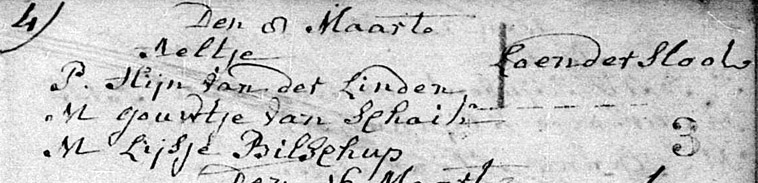 4)
Den 8 Maart
Neltje
P. Stijn van der Linden
M Gouwtje van Schaik
M Lijsje Bilschup
Loenderslool
3
Den 16 Maart